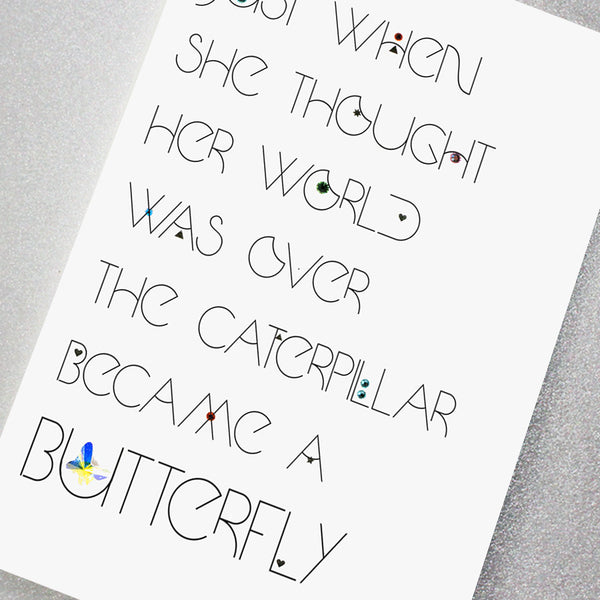 JUST WHEN
SHE THOUGHT
HER WORLD
WAS OVER
THE CATERPILLAR
BECAME A
BUTTERFLY